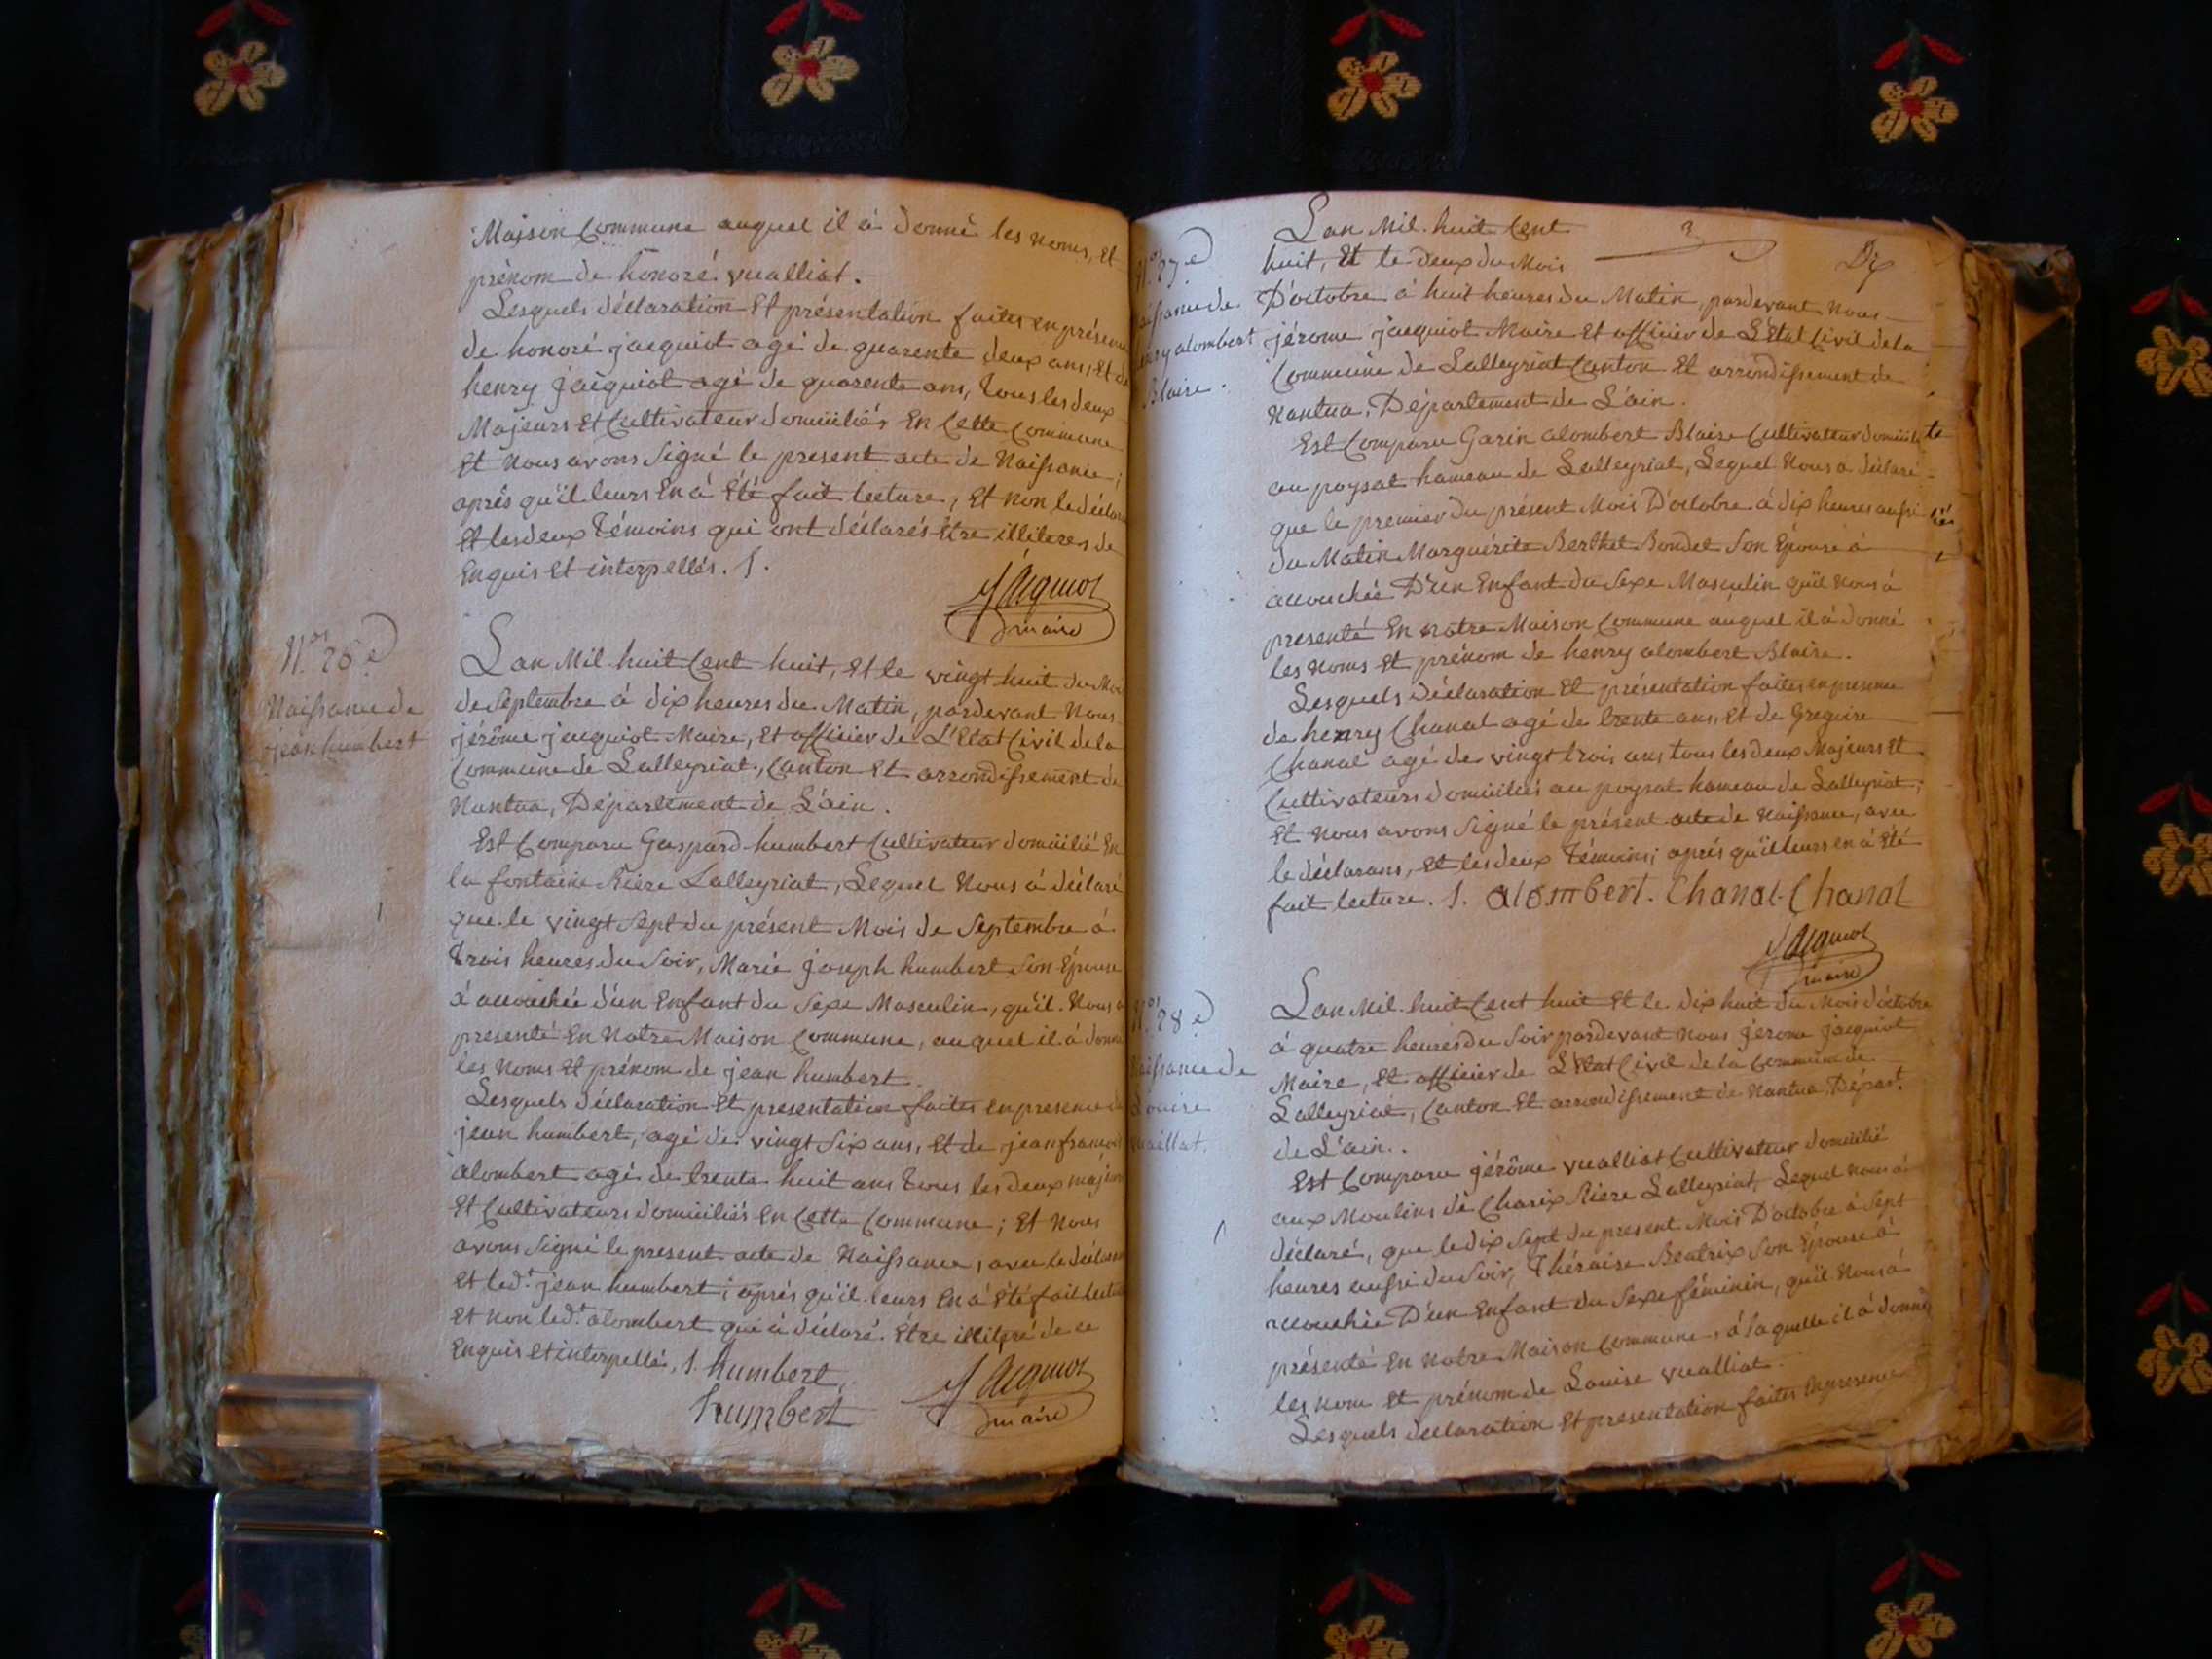 Maison Commune auquel il à donné les noms, et
prénom de honoré vualliat.
Lesquels déclaration Et présentation faites en présence
de honoré jacquiot agé de quarente deux ans, et de
henry jacquiot agé de quarente ans, Tous les deux
Majeurs Et Cultivateur domiciliés En Cette Commune
Et Nous avons Signé le present acte de Naissance;
après qu'il leurs En à Eté fait lecture, Et non le déclara
Et les deux Témoins qui ont déclarés Etre illiterés de
Enquis Et interpellés. S.
Jacquiot
maire
N.os 26e
Naissance de
jean humbert
Lan Mil huit Cent huit, Et le vingt huit du Moi
de Septembre à dix heures du Matin, pardevant Nous
jérôme jacquiot Maire, Et officier de L'Etat Civil de la
Commune de Lalleyriat, Canton Et arrondissement de
Nantua, Département de L'ain.
Est Comparu Gaspard humbert Cultivateur domicilié En
la fontaine Riere Lalleyriat, Lequel Nous à déclaré
que le vingt Sept du présent Mois de Septembre à
Trois heures du Soir, Marie joseph humbert Son Epouse
à accouchée d'un Enfant du Sexe Masculin, qu'il Nous a
presenté En Notre Maison Commune, auquel il à donné
les Noms Et prénom de jean humbert.
Lesquels déclaration Et presentation faites en presence de
jean humbert, agé de vingt Six ans, Et de jean francois
alombert agé de trente huit ans Tous les deux majeurs
Et Cultivateurs domiciliés En Cette Commune; Et Nous
avons Signé le present acte de Naissance, avec le déclarant
Et led.t jean humbert; après qu'il leurs En à Eté fait lecture
Et Non led.t alombert qui à déclaré Etre illiteré de ce
Enquis Et interpellé, S. humbert,
humbert
Jacquiot
maire
Dix
N.os 27e
Naissance de
henry alombert
Blaise.
Lan Mil huit Cent
huit, Et le deux du Mois
D'octobre à huit heures du Matin, pardevant Nous
jérome jacquiot Maire Et officier de L'Etat Civil de la
Commune de Lalleyriat Canton Et arrondissement de
Nantua, Département de L'ain.
Est Comparu Garin alombert Blaise Cultivateur domicilié
au poysat hameau de Lalleyriat, Lequel Nous a déclaré
que le premier du présent Mois D'octobre à dix heures aussi
du Matin Marguérite Berthet Bondet Son Epouse à
accouchée D'un Enfant du Sexe Masculin qu'il Nous à
presenté En notre Maison Commune auquel il à donné
les Noms Et prénom de henry alombert Blaise.
Lesquels déclaration Et présentation faites en presence
de henry Chanal agé de trente ans, Et de Gregoire
Chanal agé de vingt trois ans tous les deux Majeurs Et
Cultivateurs domiciliés au poysat hameau de Lalleyriat;
Et Nous avons Signé le présent acte de Naissance, avec
le déclarans, Et les deux Témoins; après qu'il leurs en à Eté
fait lecture. S. alombert. Chanal. Chanal
Jacquiot
maire
N.os 28e
Naissance de
Louise
vualliat.
Lan Mil huit Cent huit Et le dix huit du Mois d'octobre
à quatre heures du Soir pardevant Nous jerome jacquiot
Maire, Et officier de L'Etat Civil de la Commune de
Lalleyriat, Canton Et arrondissement de Nantua Départ.
de L'ain.
Est Comparu jérôme vualliat Cultivateur domicilié
aux Moulins de Charix Riere Lalleyriat, Lequel nous à
déclaré, que le dix Sept du present Mois D'octobre à Sept
heures aussi du Soir, Théraise Beatrix Son Epouse à
accouchée D'un Enfant du Sexe féminin, qu'il Nous à
présenté En Notre Maison Commune, à laquelle il à donné
les nom Et prénom de Louise vualliat.
Lesquels declaration Et presentation faites En presence